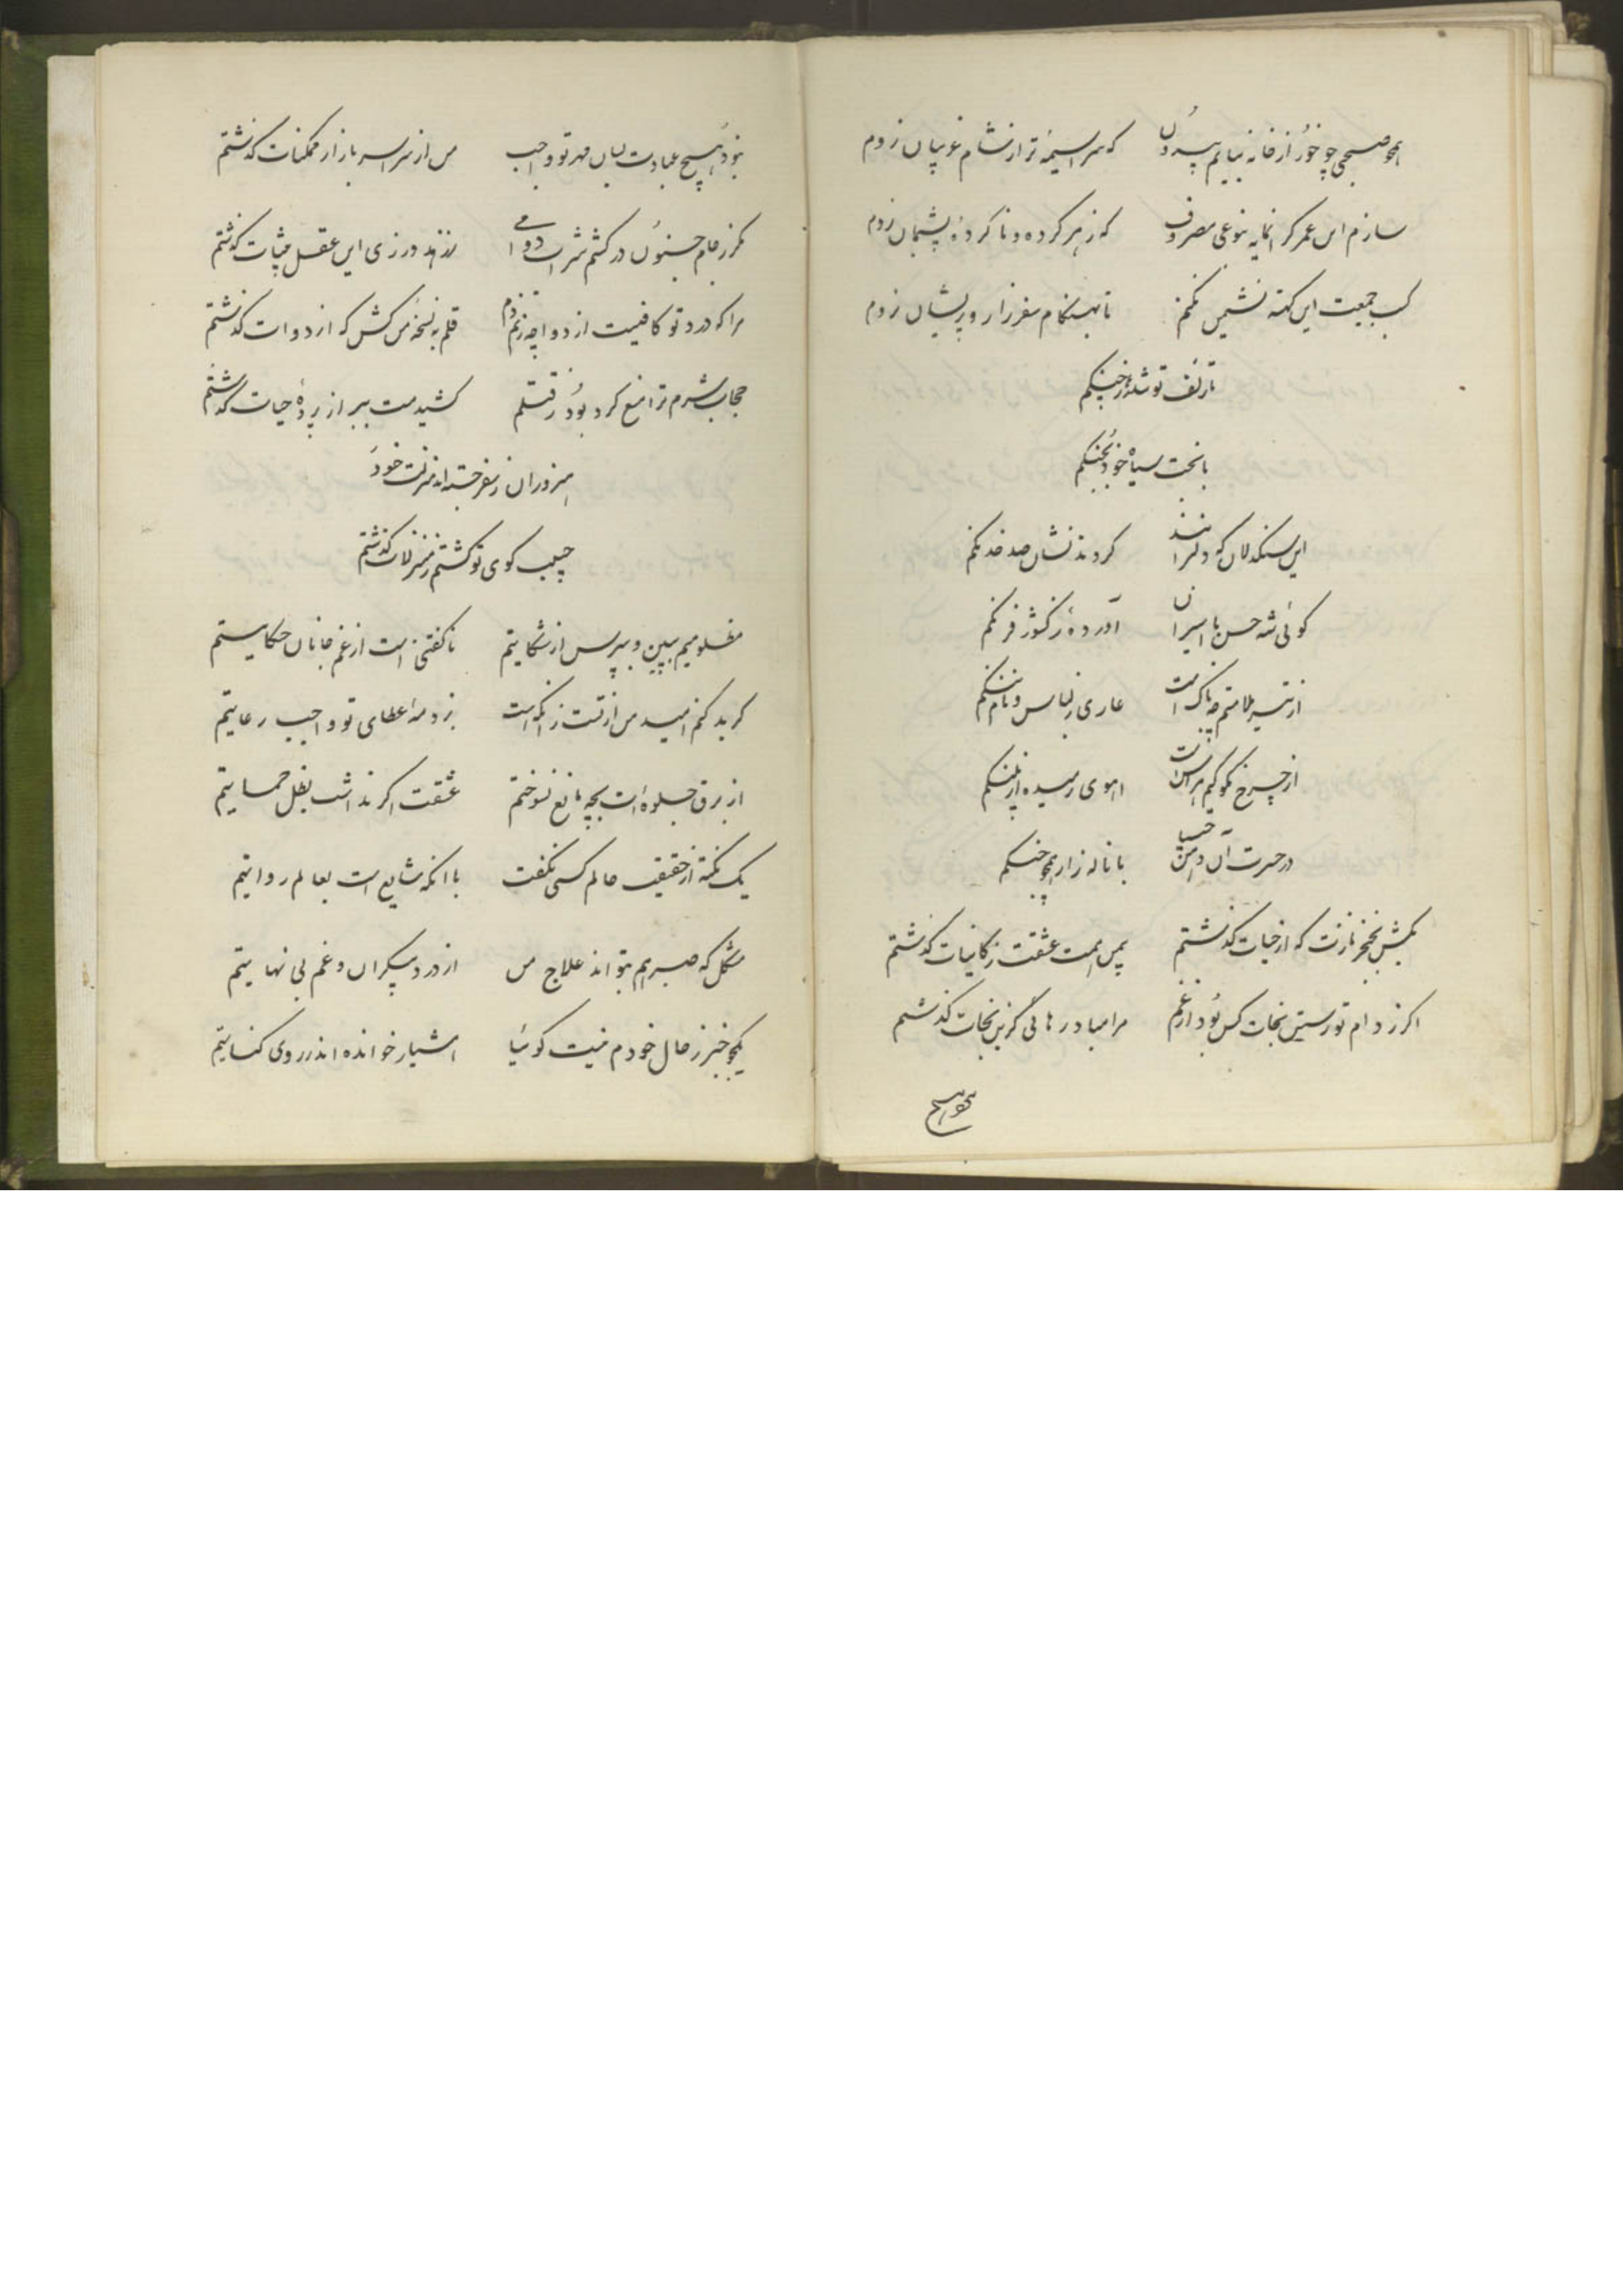 همچو صبحی چو خور از خانه نیایم بیرون که سراسیمه‌تر از شام غریبان نروم
سازم این عمر گرانمایه بنوعی مصروف که ز هر کرده و ناکرده پشیمان نروم
کسب جمعیت این کهنه نشیمن نکنم تا بهنگام سفر زار و پریشان نروم
تا زلف تو شد بچنگم
با بخت سیاه خود بجنگم
این سنگدلان که دلربایند کردند نشان صد خدنگم
گوئی شه حسن با اسیران آورده ز کشور فرنگم
از تیر ملامتم چه باک است عاری ز لباس و نام ننگم
از چرخ نگویم هراسان است آهوی رمیده از پلنگم
در حسرت آن دامن با ناله زار همچو چنگم
بکش بخنجر نازت که از حیات گذشتم بیمن همت عشقت ز کاینات گذشتم
اگر ز دام تو رستن نجات کس بود از غم مرا مباد رهائی کزین نجات گذشتم
نبود هیچ عبادت بسان مهر تو واجب من از سراسر بازار ممکنات گذشتم
مگر ز جام جنون درکشم شراب دوامی ز زهد ورزی این عقل بی‌ثبات گذشتم
مرا که درد تو کافیست از دوا چه زنم دم قلم به نسخه من کش که از دوات گذشتم
حجاب شرم ترا منع کرد بود ز قتلم کشیدمت ببر از پرده حیات گذشتم
هنروران ز سفر جسته‌اند منزلت خود
حبیب کوی تو گشتم ز منزلات گذشتم
مظلومیم ببین و بپرس از شکایتم ناگفتنی است از غم جانان حکایتم
گر بد کنم امید من از تست زانکه است بر ذمه عطای تو واجب رعایتم
از برق جلوه‌ات بچه مانع نسوختم عشقت اگر نداشت بظل حمایتم
یک نکته از حقیقت حالم کسی نگفت با آنکه شایع است بعالم روایتم
مشکل که صبر هم بتواند علاج من از درد بیکران و غم بی نهایتم
یکجو خبر ز حال خودم نیست گوئیا هشیار خوانده‌اند ز روی کنایتم